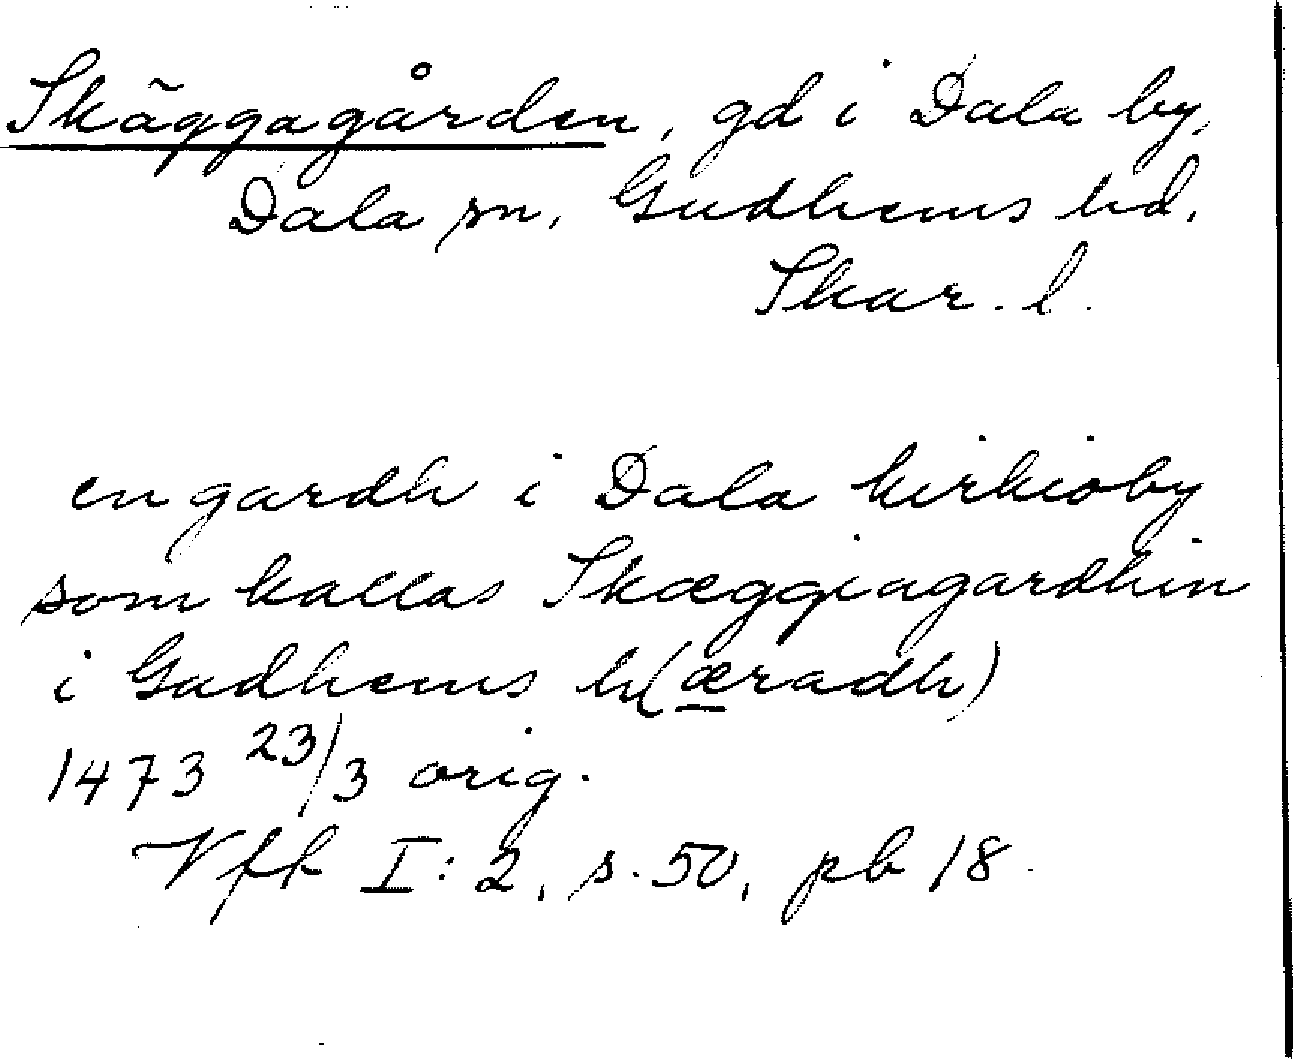 Skäggagården, gd i Dala by,
Dala sn, Gudhems hd,
Skar. l.
en gardh i Dala kirkioby
som kallas Skæggiagardhin
i Gudhems h(æradh)
1473 23/3 orig.
Vft I: 2, s. 50, pb 18.